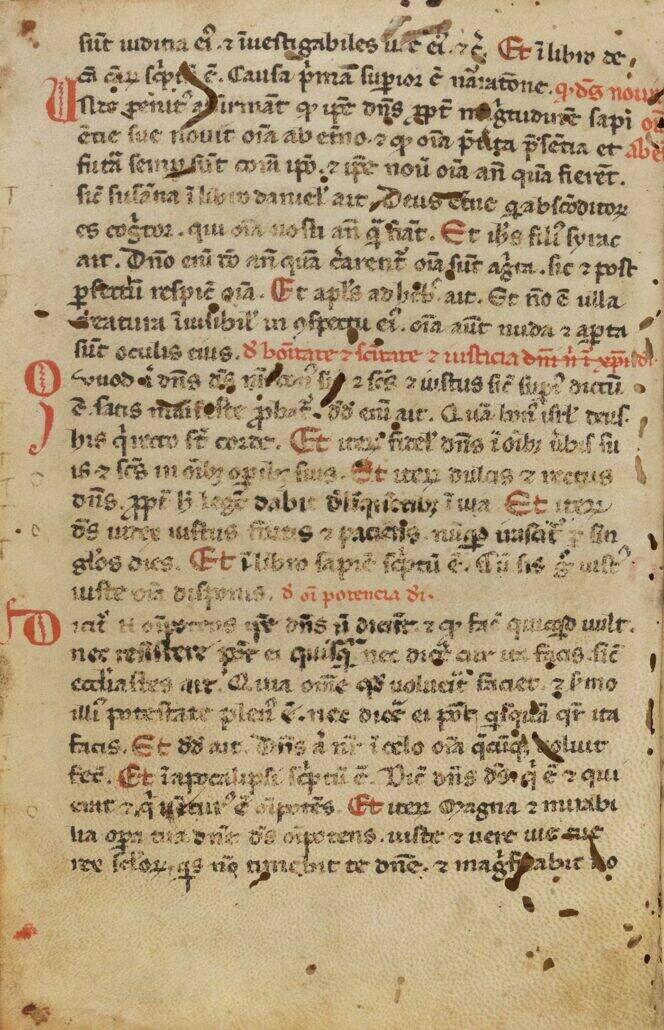 sūt iuditia ei᷒. ⁊ īuestigabiles uie ei᷒. ⁊c̄. Et ī libro de
scp̄tū ē. Causa p̄mā supior ē nāratōne. qͥ dn̄s nouit
affirmāt qͥ ip̄e dn̄s ꝓpt̄ magͥtudinē sapi
ētie sue nouit oīa ab et̄no. ⁊ qͥ oīa p̄tita p̄sētia et
futā semꝑ sūt corā ip̄o. ⁊ ip̄e nou̅ oīa an̄ quā fierēt.
sic̄ susāna ī libro daniel᷒ ait. Deus et̄ne qͥ absc̄ditoꝝ
es cogͥtor. qui oīa nosti an̄ qͣ fiāt. Et ih̄s fili᷒ syrac
ait. Dn̄o eni̅ an̄ quā c̄arent̄ oīa sūt agͥta. sic ⁊ post
ꝑfectū respic̄ oīa. Et apl̄s ad heb̄. ait. Et nō ē ulla
creatura īuisibil᷒ in ꝯspectu ei᷒. oīa aūt nuda ⁊ aꝑta
sūt oculis eius. d̄ bōitate ⁊ sc̄itate ⁊ iusticia dn̄i n̄i ih̄ xp̄i
Quod dn̄s ⁊ sc̄s ⁊ iustus sic̄ supͣ dictū
ē. satis manifeste ꝓbat̄. dd̄ eni̅ ait. Quā bon᷒ isrl̄ deus.
his qͥ recto st̄ corde. Et iteꝝ fidel᷒ dn̄s ī oīb; ūbis su
is ⁊ sc̄s in oīb; oꝑib; suis. Et iteꝝ dulcis ⁊ rectus
dn̄s. ꝓpt̄ h̄ legē dabit dl̄īquētib; ī uia Et iteꝝ
d̄s iudex iustus fortis ⁊ paciens. nūqͥd irascit̄ p̄ sin
gl̄os dies. Et ī libro sapiē sc̄ptū ē. Cū sis gͦ iust᷒
iuste oīa disponis. d̄ oī potencia d̄i.
Dicit̄ oīpotens dn̄s ⁊ qͥ fac̄ quicqͥd uult.
nec resistere pt̄ ei quisqͣ nec dic̄e cur ita facis. sic̄
ecclīastes ait. Quia om̄e qd̄ uoluerit faciet. ⁊ s̄mo
illi᷒ potestate plen᷒ ē. nec dic̄e ei pōt qͥsquā qͬ ita
facis. Et dd̄ ait. Dn̄s ī celo oīa qͤcūqͥ uoluit
fec̄. Et ī apocalipsi sc̄ptū ē. Dic̄ dn̄s d̄s qͥ ē ⁊ qui
erat ⁊ qͥ uētur᷒ ē oīpotēs. Et iteꝝ Magna ⁊ mirabi
lia oꝑa tua dn̄e d̄s oīpotens. iuste ⁊ uere uie tue
rex sc̄loꝝ. qͥs nō timebit te dn̄e. ⁊ magͥficabit no